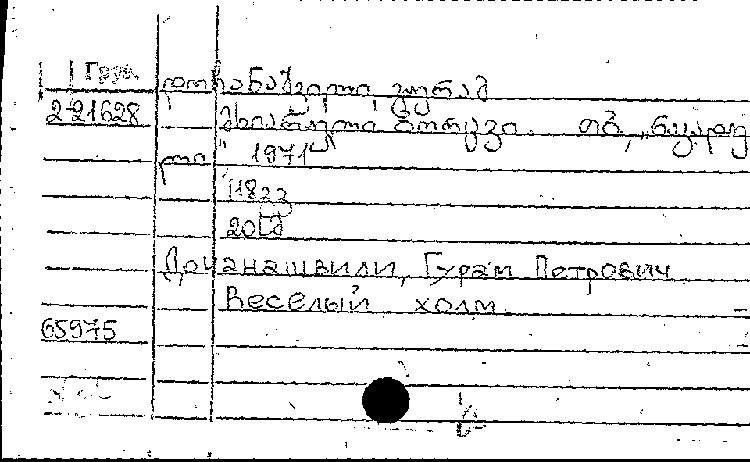 Груз.
დოჩანაშვილი, გურამ
2-21628 მხიარული ბორცვი. თბ., „ნაკადუ
ლი" 1971
118 გვ
Дочанашвили, Гурам Петрович
Веселый холм.
65975